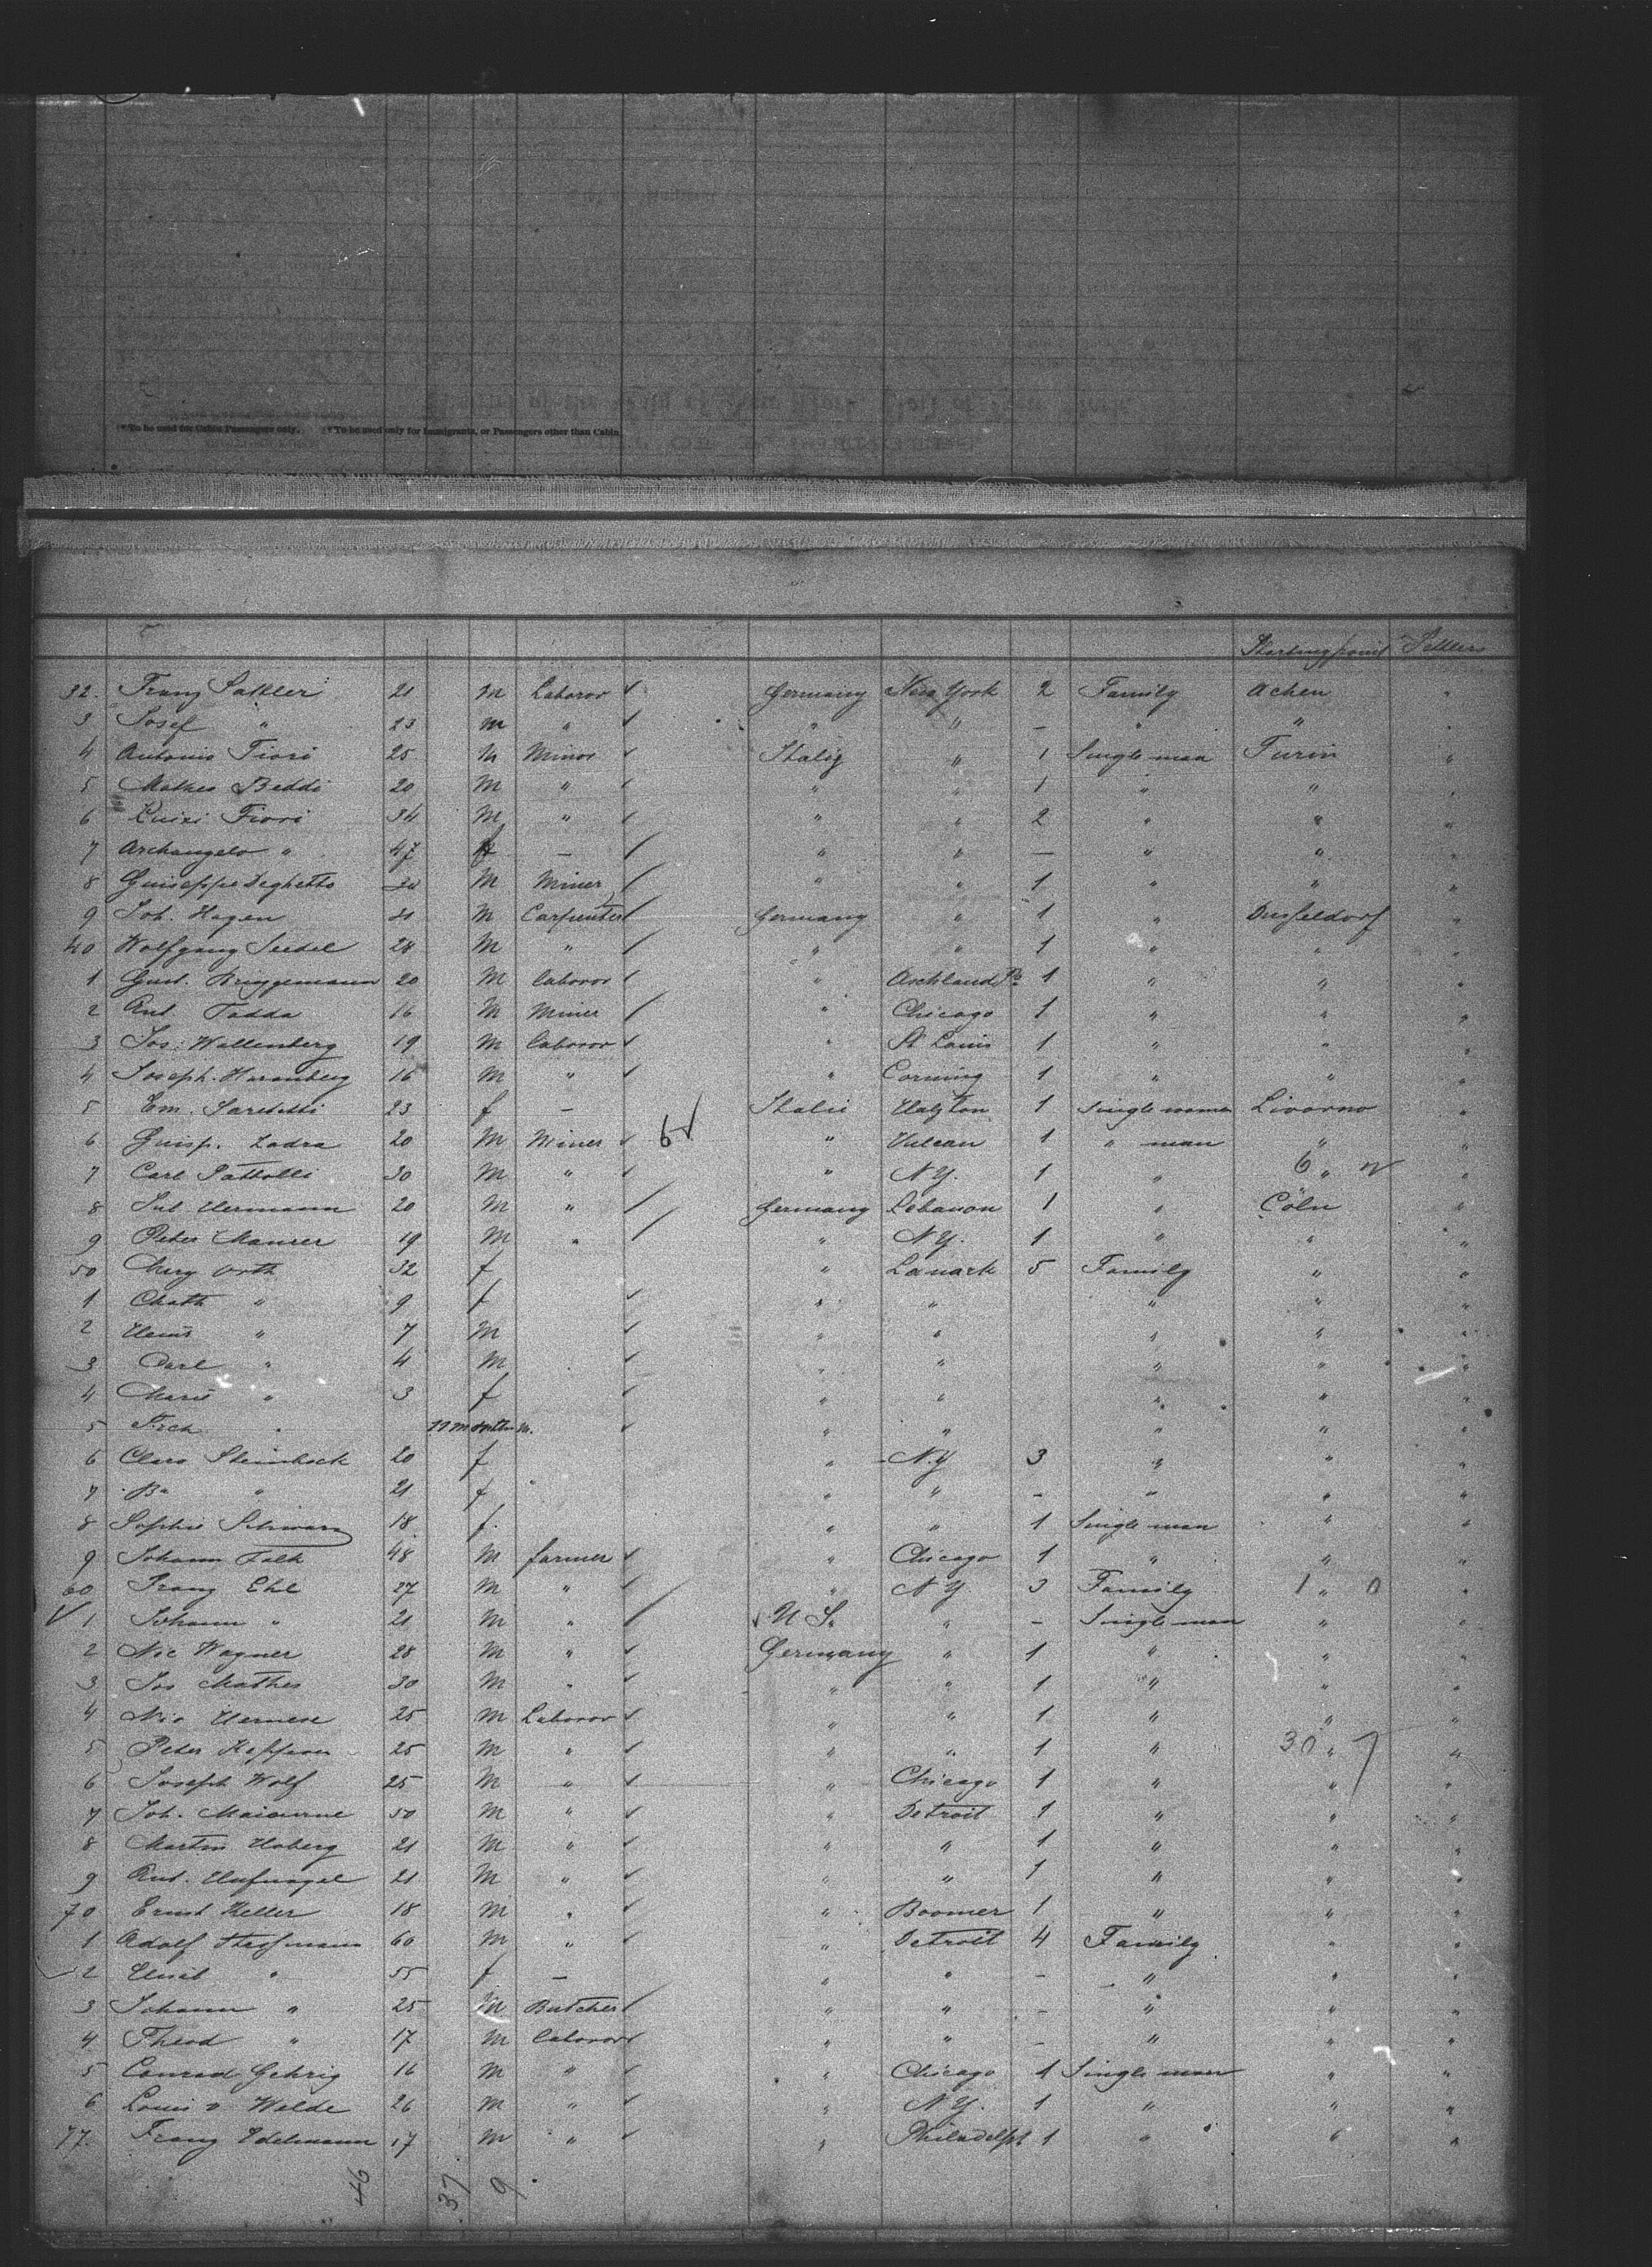 (*To be used for Cabin Passengers only. (†To be used only for Immigrants, or Passengers other than Cabin.
Startingpoint Settlers
32. Franz Sattler 21 M Laboror ✓ Germany New York 2 Family Achen "
3 Josef " 23 M " ✓ " " – " " "
4 Antonio Fiori 25 M Minor ✓ Italiy " 1 Single man Turin "
5 Matheo Beddi 20 M " ✓ " " 1 " " "
6 Luizi Fiori 34 M " ✓ " " 2 " " "
7 Archangelo " 47 f – / " " – " " "
8 Guiseppe Deghetto M Miner / " " 1 " " "
9 Joh. Hagen 21 M Carpenter / Germany " 1 " Dusseldorf "
40 Wolfgang Seidel 28 M " / " " 1 " " "
1 Gust. Bruggemann 20 M laboror ✓ " Aschland Pa 1 " " "
2 Ant Tadda 16 M Miner / " Chicago 1 " " "
3 Jos. Wallenberg 19 M laboror ✓ " St Louis 1 " " "
4 Joseph. Haranberg 16 M " ✓ " Corning 1 " " "
5 Em. 23 f – Italie Hazlton 1 Single women Livorno "
6 Guisp. Zadra 20 M Miner ✓ 6✓ " Vulcan 1 " man " "
7 Carl Pattolli 30 M " ✓ " N Y. 1 " 6 " "
8 Jul Hermann 20 M " / Germany Lebanon 1 " Cöln "
9 Peter Maurer 19 M " / " N Y. 1 " " "
50 Mary Orth 32 f " Lanark 5 Family " "
1 Cath " 9 f ✓ " " " " "
2 " 7 M ✓ " " " " "
3 Carl " 4 M ✓ " " " " "
4 Marie " 3 f ✓ " " " " "
5 " 11 months M. ✓ " " " " "
6 Clara Steinbock 20 f " N.Y 3 " " "
7 " 21 f " " – " " "
8 Sophie Schwarz 18 f. " " 1 Single man " "
9 Johann Falk 48 M farmer ✓ " Chicago 1 " " "
60 Franz Ehl 27 M " ✓ " N Y. 3 Family 1 " 0 "
✓ 1 Johann " 21 M " / ✓ U S. " – Single man " "
2 Nic Wagner 28 M " ✓ Germany " 1 " " "
3 Jos Mathes 30 M " ✓ " " 1 " " "
4 Nic 25 M Laboror ✓ " " 1 " " "
5 Peter 25 M " ✓ " " 1 " 30 " 7 "
6 Joseph Wolf 25 M " ✓ " Chicago 1 " " "
7 Joh. 50 M " ✓ " Detroit 1 " " "
8 Martin Hoberg 21 M " ✓ " " 1 " " "
9 Ant. Hufnagel 21 M " ✓ " " 1 " " "
70 Ernst Keller 18 M " ✓ " Boomer 1 " " "
1 Adolf 60 M " ✓ " Detroit 4 Family " "
2 Elisib " 55 f – " " – " " "
3 Johann " 25 M Butcher / " " – " " "
4 Theod " 17 M laboror ✓ " " – " " "
5 Conrad Gehrig 16 M " ✓ " Chicago 1 Single man " "
6 Louis v. Welde 26 M " ✓ " N Y. 1 " " "
77. Franz Edelmann 17 M " ✓ " Philadelph 1 " " "
46 37 9